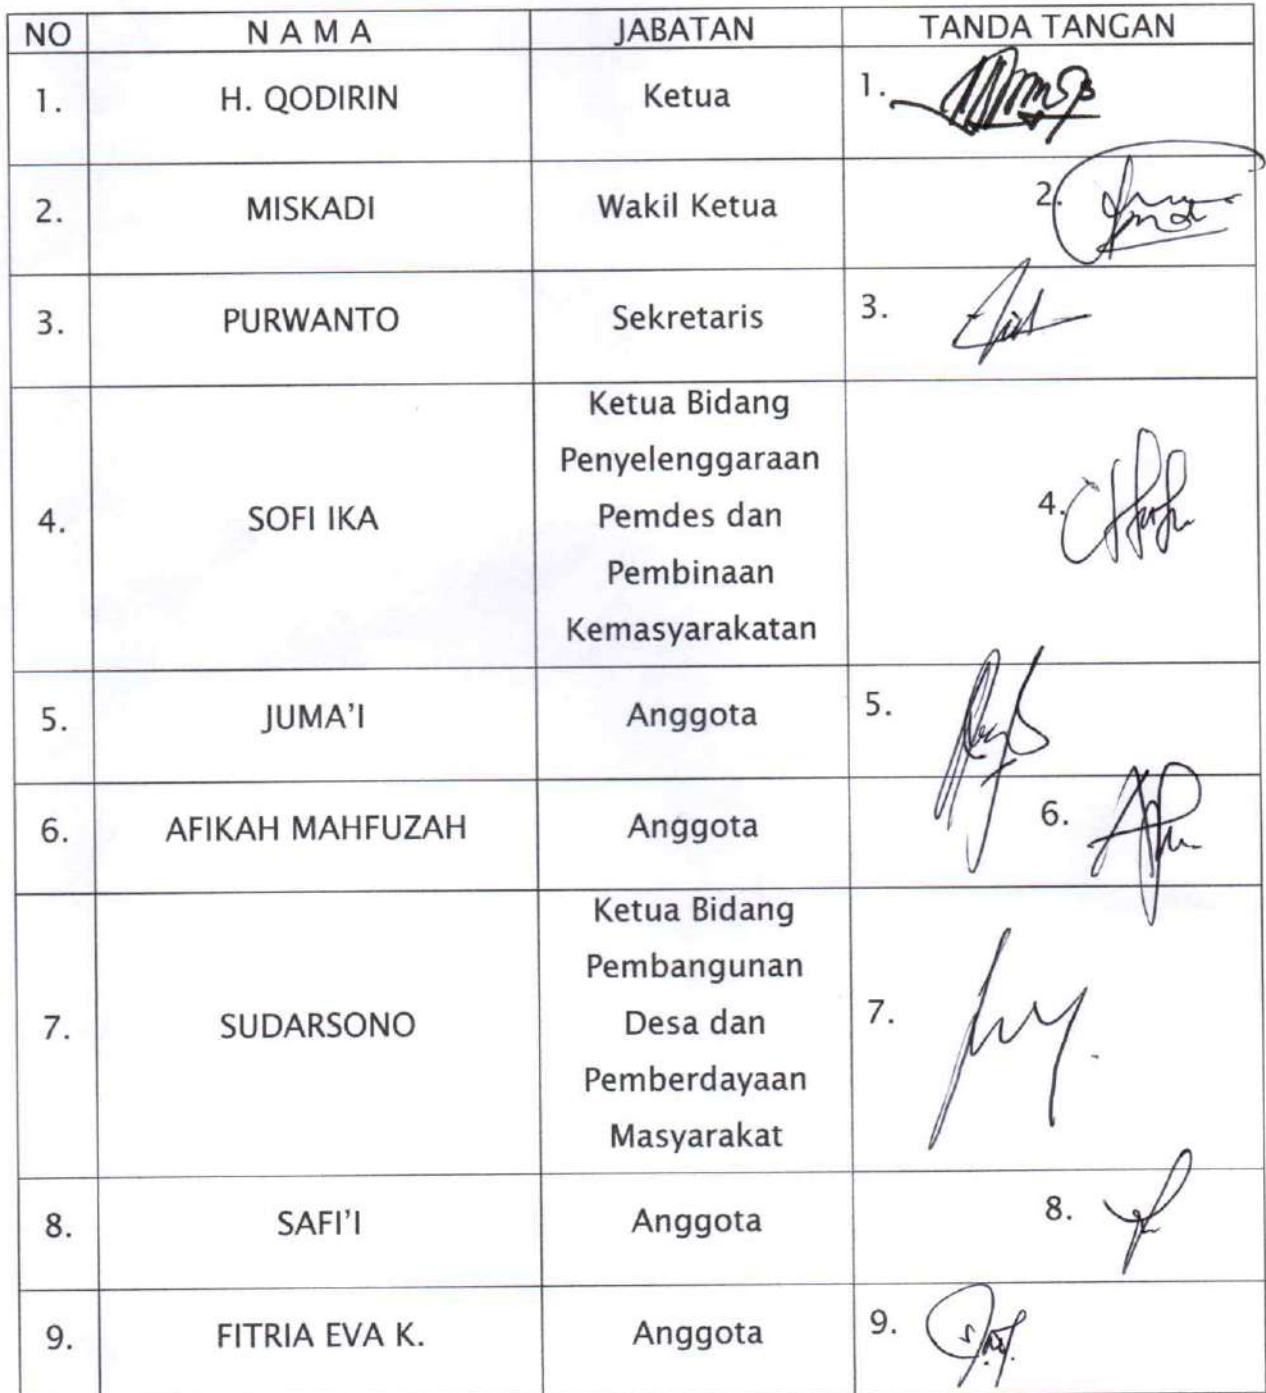 NO N A M A JABATAN TANDA TANGAN
1. H. QODIRIN Ketua 1.
2. MISKADI Wakil Ketua 2.
3. PURWANTO Sekretaris 3.
4. SOFI IKA Ketua Bidang
Penyelenggaraan
Pemdes dan
Pembinaan
Kemasyarakatan
4.
5. JUMA'I Anggota 5.
6. AFIKAH MAHFUZAH Anggota 6.
7. SUDARSONO Ketua Bidang
Pembangunan
Desa dan
Pemberdayaan
Masyarakat
7.
8. SAFI'I Anggota 8.
9. FITRIA EVA K. Anggota 9.